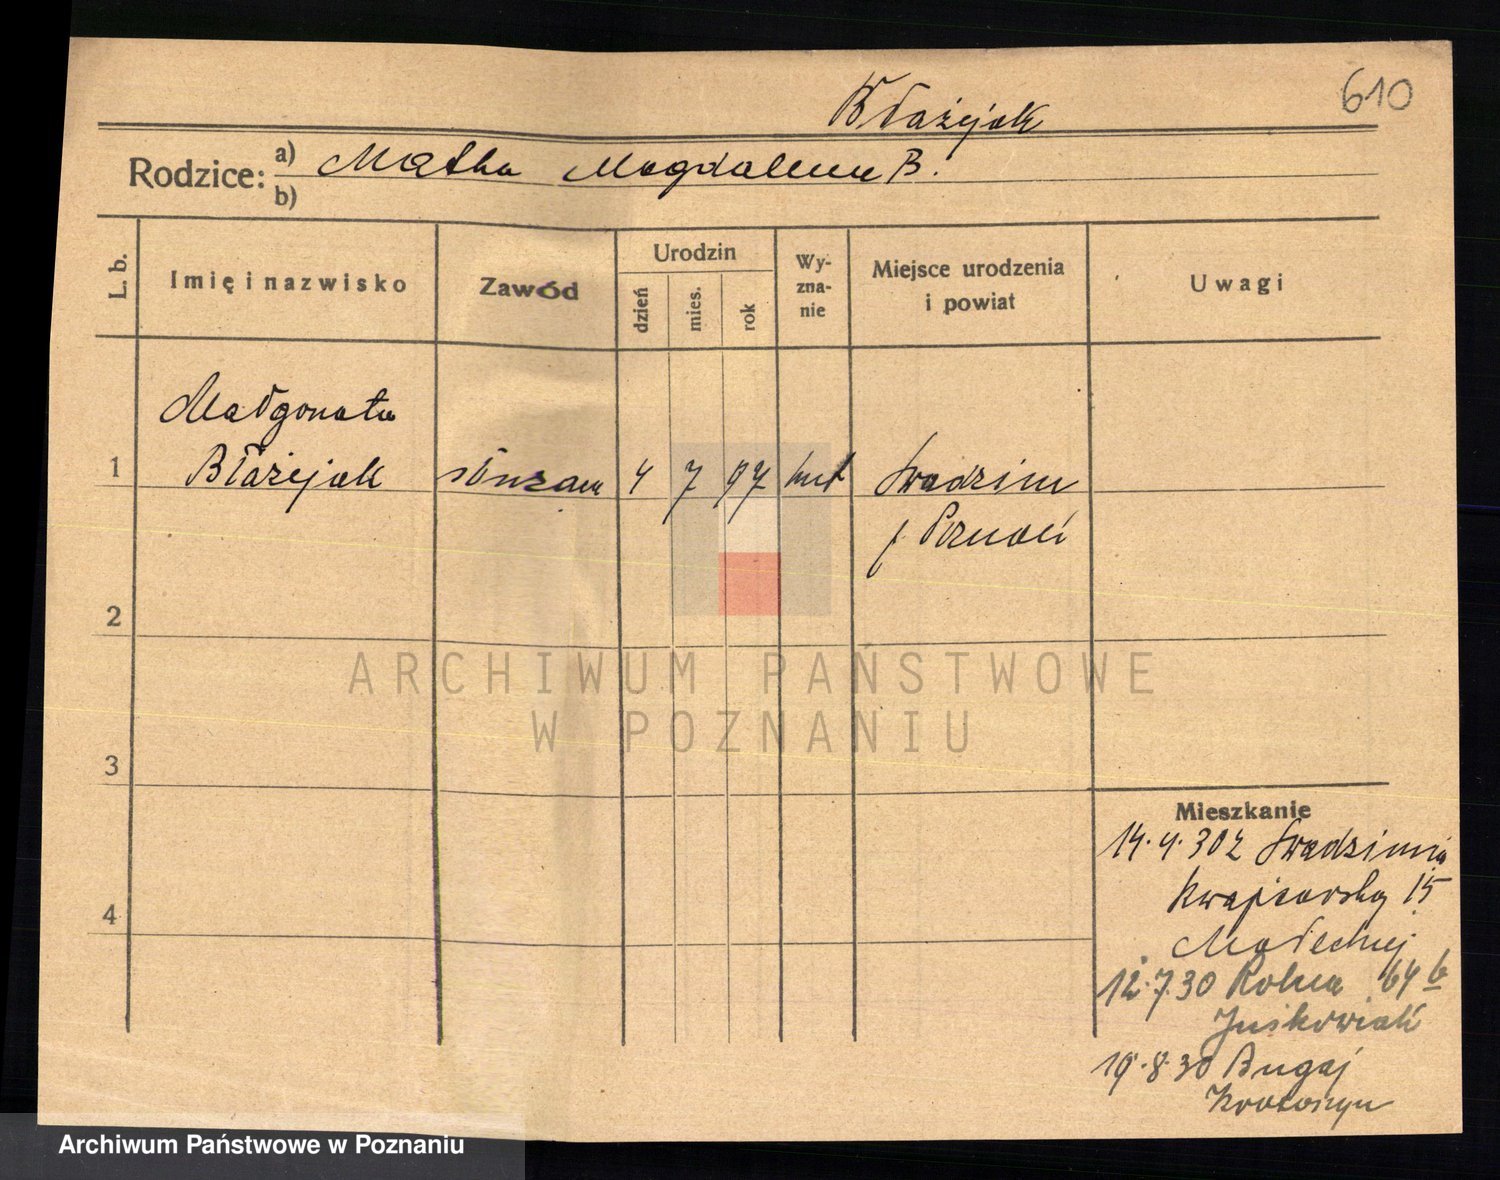 610
Błażejak
Rodzice: a) Matka Magdalena B.
b)
L. b.
Imię i nazwisko
Zawód
Urodzin
dzień
mies.
rok
Wy-
zna-
nie
Miejsce urodzenia
i powiat
Uwagi
Małgorzata
1 Błażejak służąca 4 7 07 kat Swadzim
p Poznań
2
3
4
Mieszkanie
14.4.30 z Swadzimia
15
Małeckiej
12.7.30 Rolna 64 b
Juśkowiak
19.8.30 Bugaj
Krotoszyn
ARCHIWUM PAŃSTWOWE
W POZNANIU
Archiwum Państwowe w Poznaniu